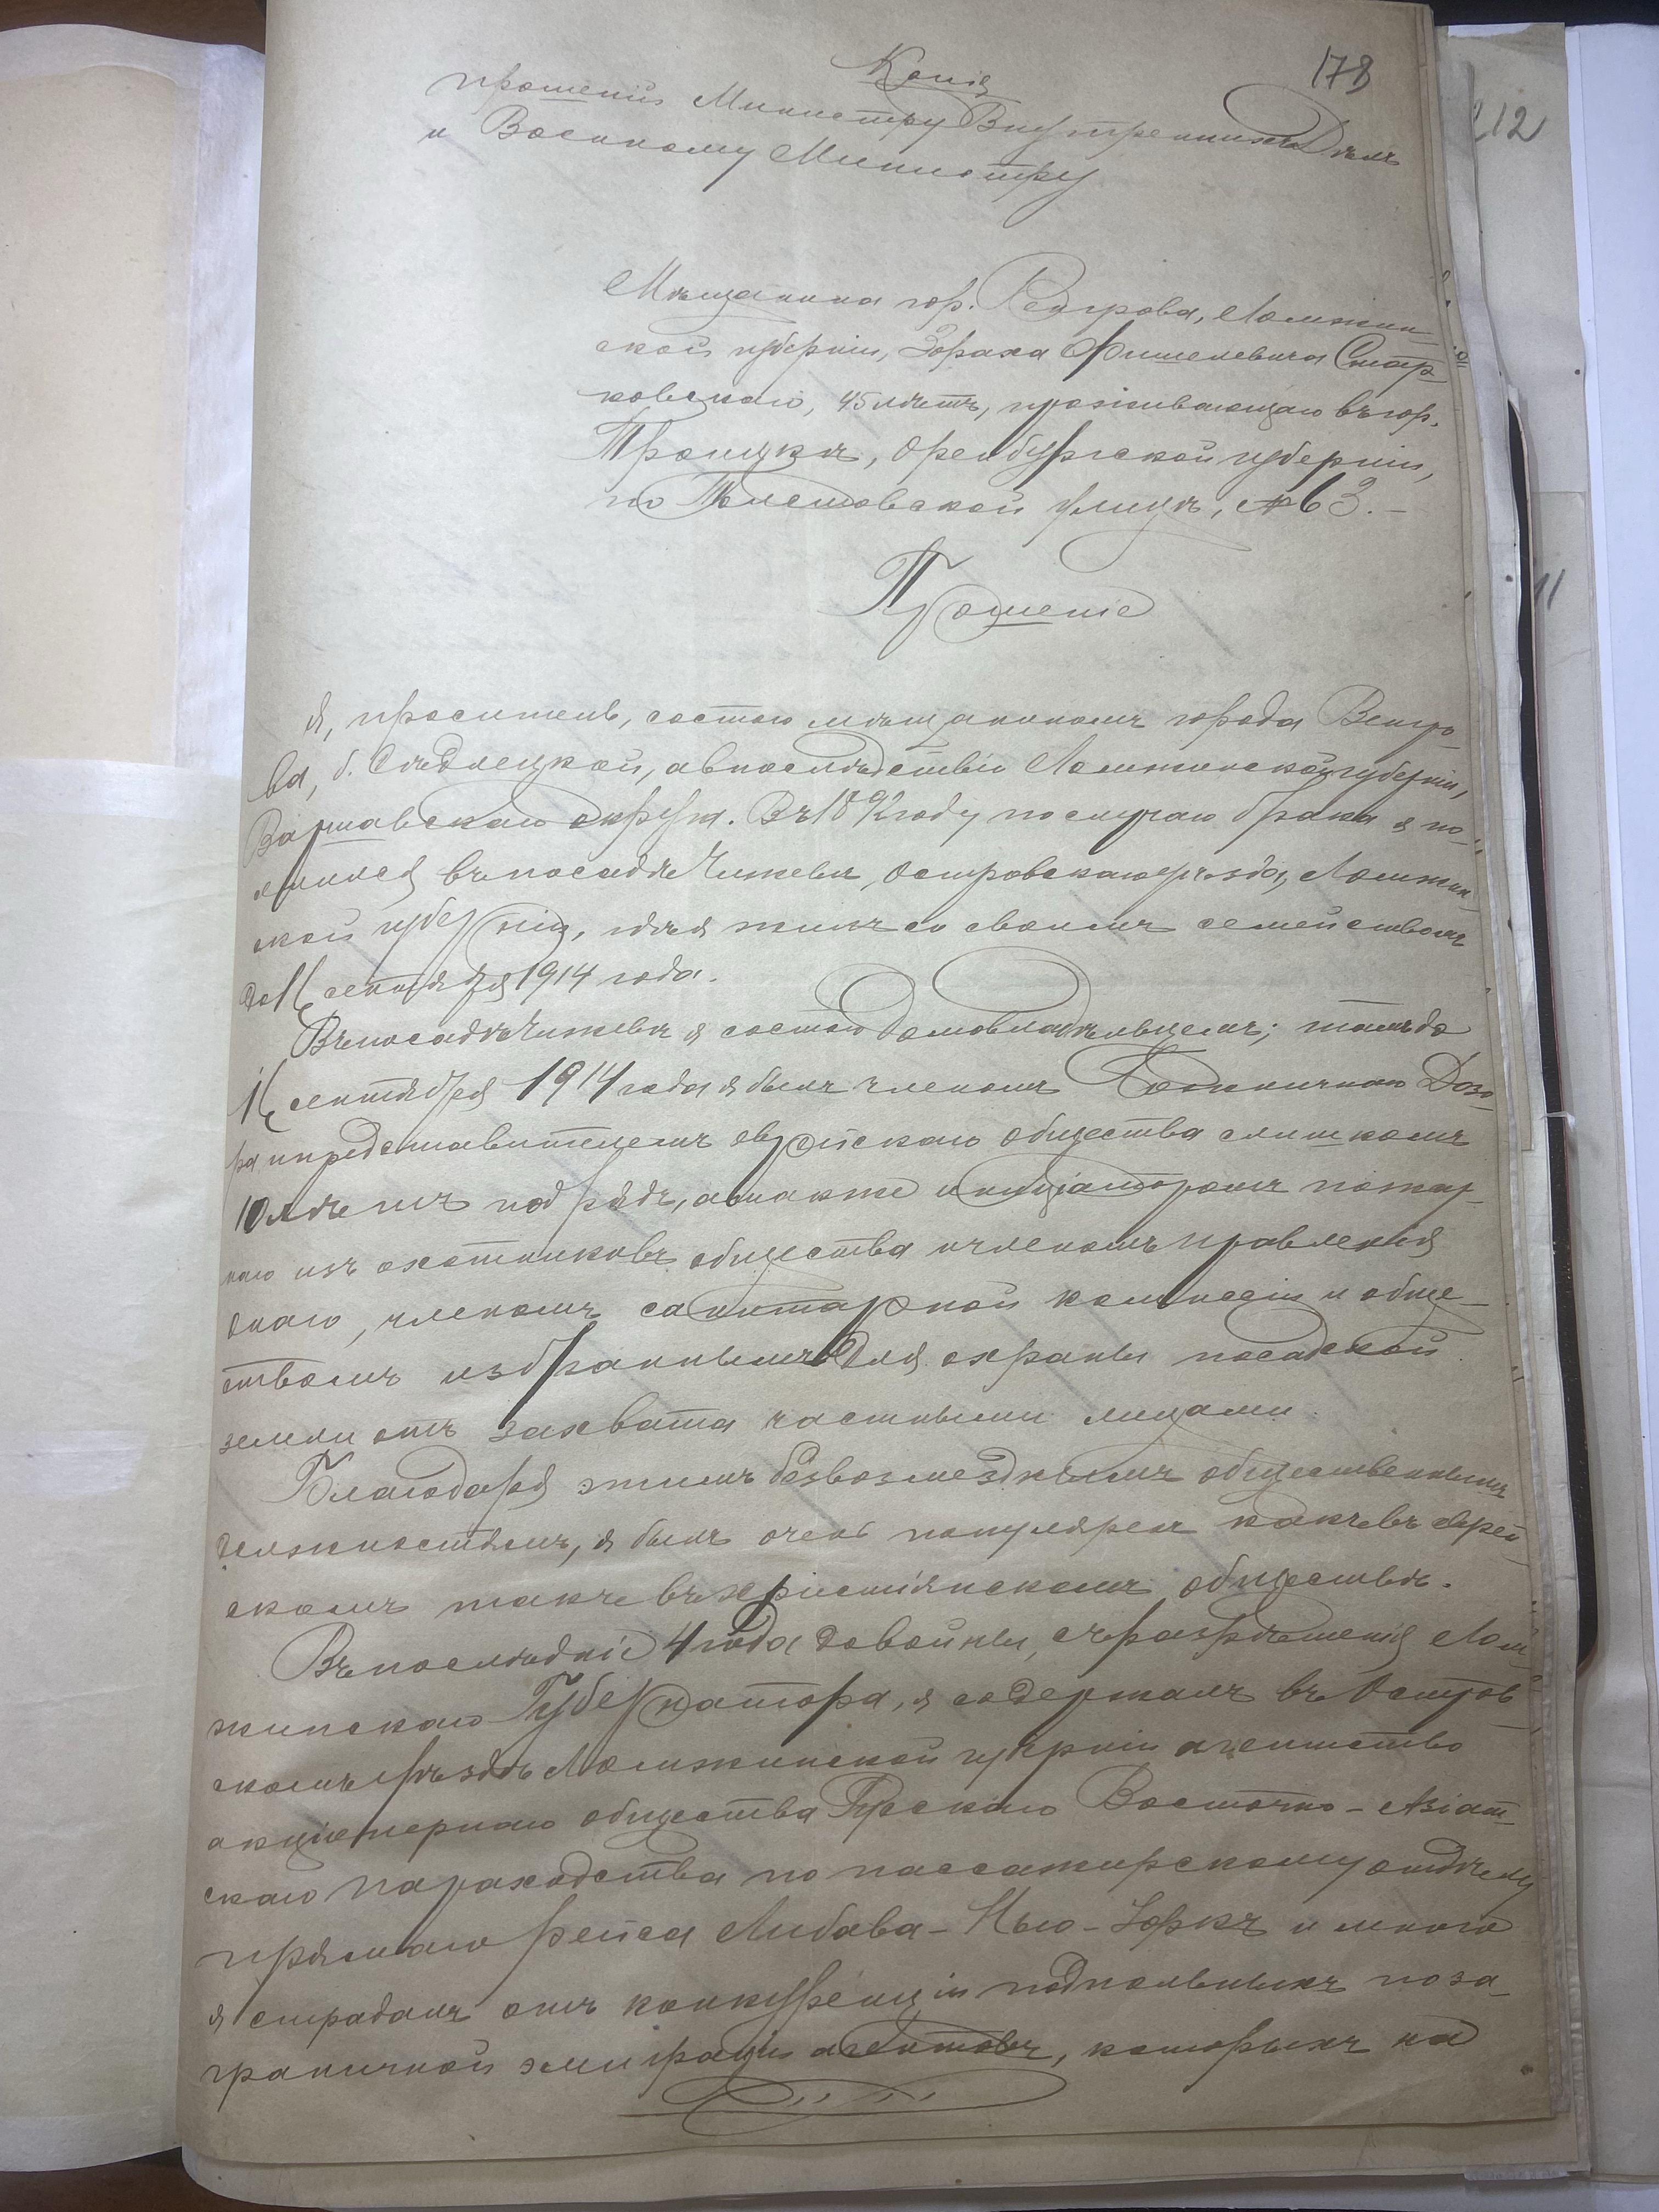 178
Копія
прошенія Министру Внутреннихъ Дѣлъ
и Военному Министру
212
Мѣщанина гор. Венгрова, Ломжин-
ской губерніи, Зораха Фишелевича Смар-
ковскаго, 45 лѣтъ, проживающаго въ гор.
Троицкѣ, Оренбургской губерніи,
по Толстовской улицѣ, № 63.-
Прошеніе
11
Я, проситель, состою мѣщаниномъ города Венгро-
ва, б. Сѣдлецкой, а впослѣдствіи Ломжинской губерніи,
Варшавскаго округа. Въ 1892 году по случаю брака я по-
селился въ посадѣ Чижевѣ, Островскаго уѣзда, Ломжин-
ской губерніи, гдѣ я жилъ со своимъ семействомъ
до 16 сентября 1914 года.
Въ посадѣ Чижевѣ я состою домовладѣльцемъ; тамъ до
16 сентября 1914 года я былъ членомъ Божничнаго Дозо-
ра и представителемъ еврейскаго общества слишкомъ
10 лѣтъ подрядъ, а также иниціаторомъ пожар-
наго изъ охотниковъ общества и членомъ правленія
онаго, членомъ санитарной комиссіи и обще-
ствомъ избраннымъ для охраны посадской
земли отъ захвата частными лицами.
Благодаря этимъ безвозмезднымъ общественнымъ
должностямъ, я былъ очень популяренъ какъ въ еврей-
скомъ такъ и въ христіянскомъ обществѣ.
Въ послѣдніе 4 года до войны, съ разрѣшенія Лом-
жинскаго Губернатора, я содержалъ въ Островс-
комъ уѣздѣ Ломжинской губерніи агентство
акціонернаго общества Русскаго Восточно-Азіат-
скаго пароходства по пассажирскому отдѣлу
прямаго рейса Либава-Нью-Іоркъ и много
я страдалъ отъ конкуренціи подпольныхъ по за-
граничной эмиграціи агентовъ, которыхъ на